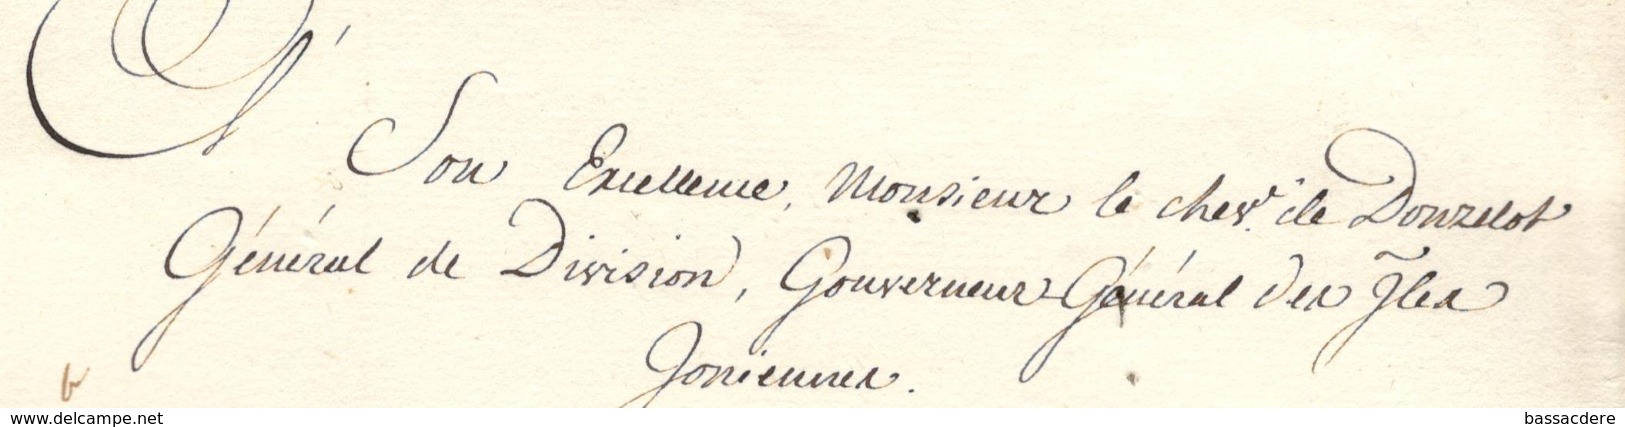 À
Son Excellence, Monsieur le chevr. de Donzelot
Général de Division, Gouverneur-Général des Îles
Joniennes.
www.delcampe.net
bassacdere